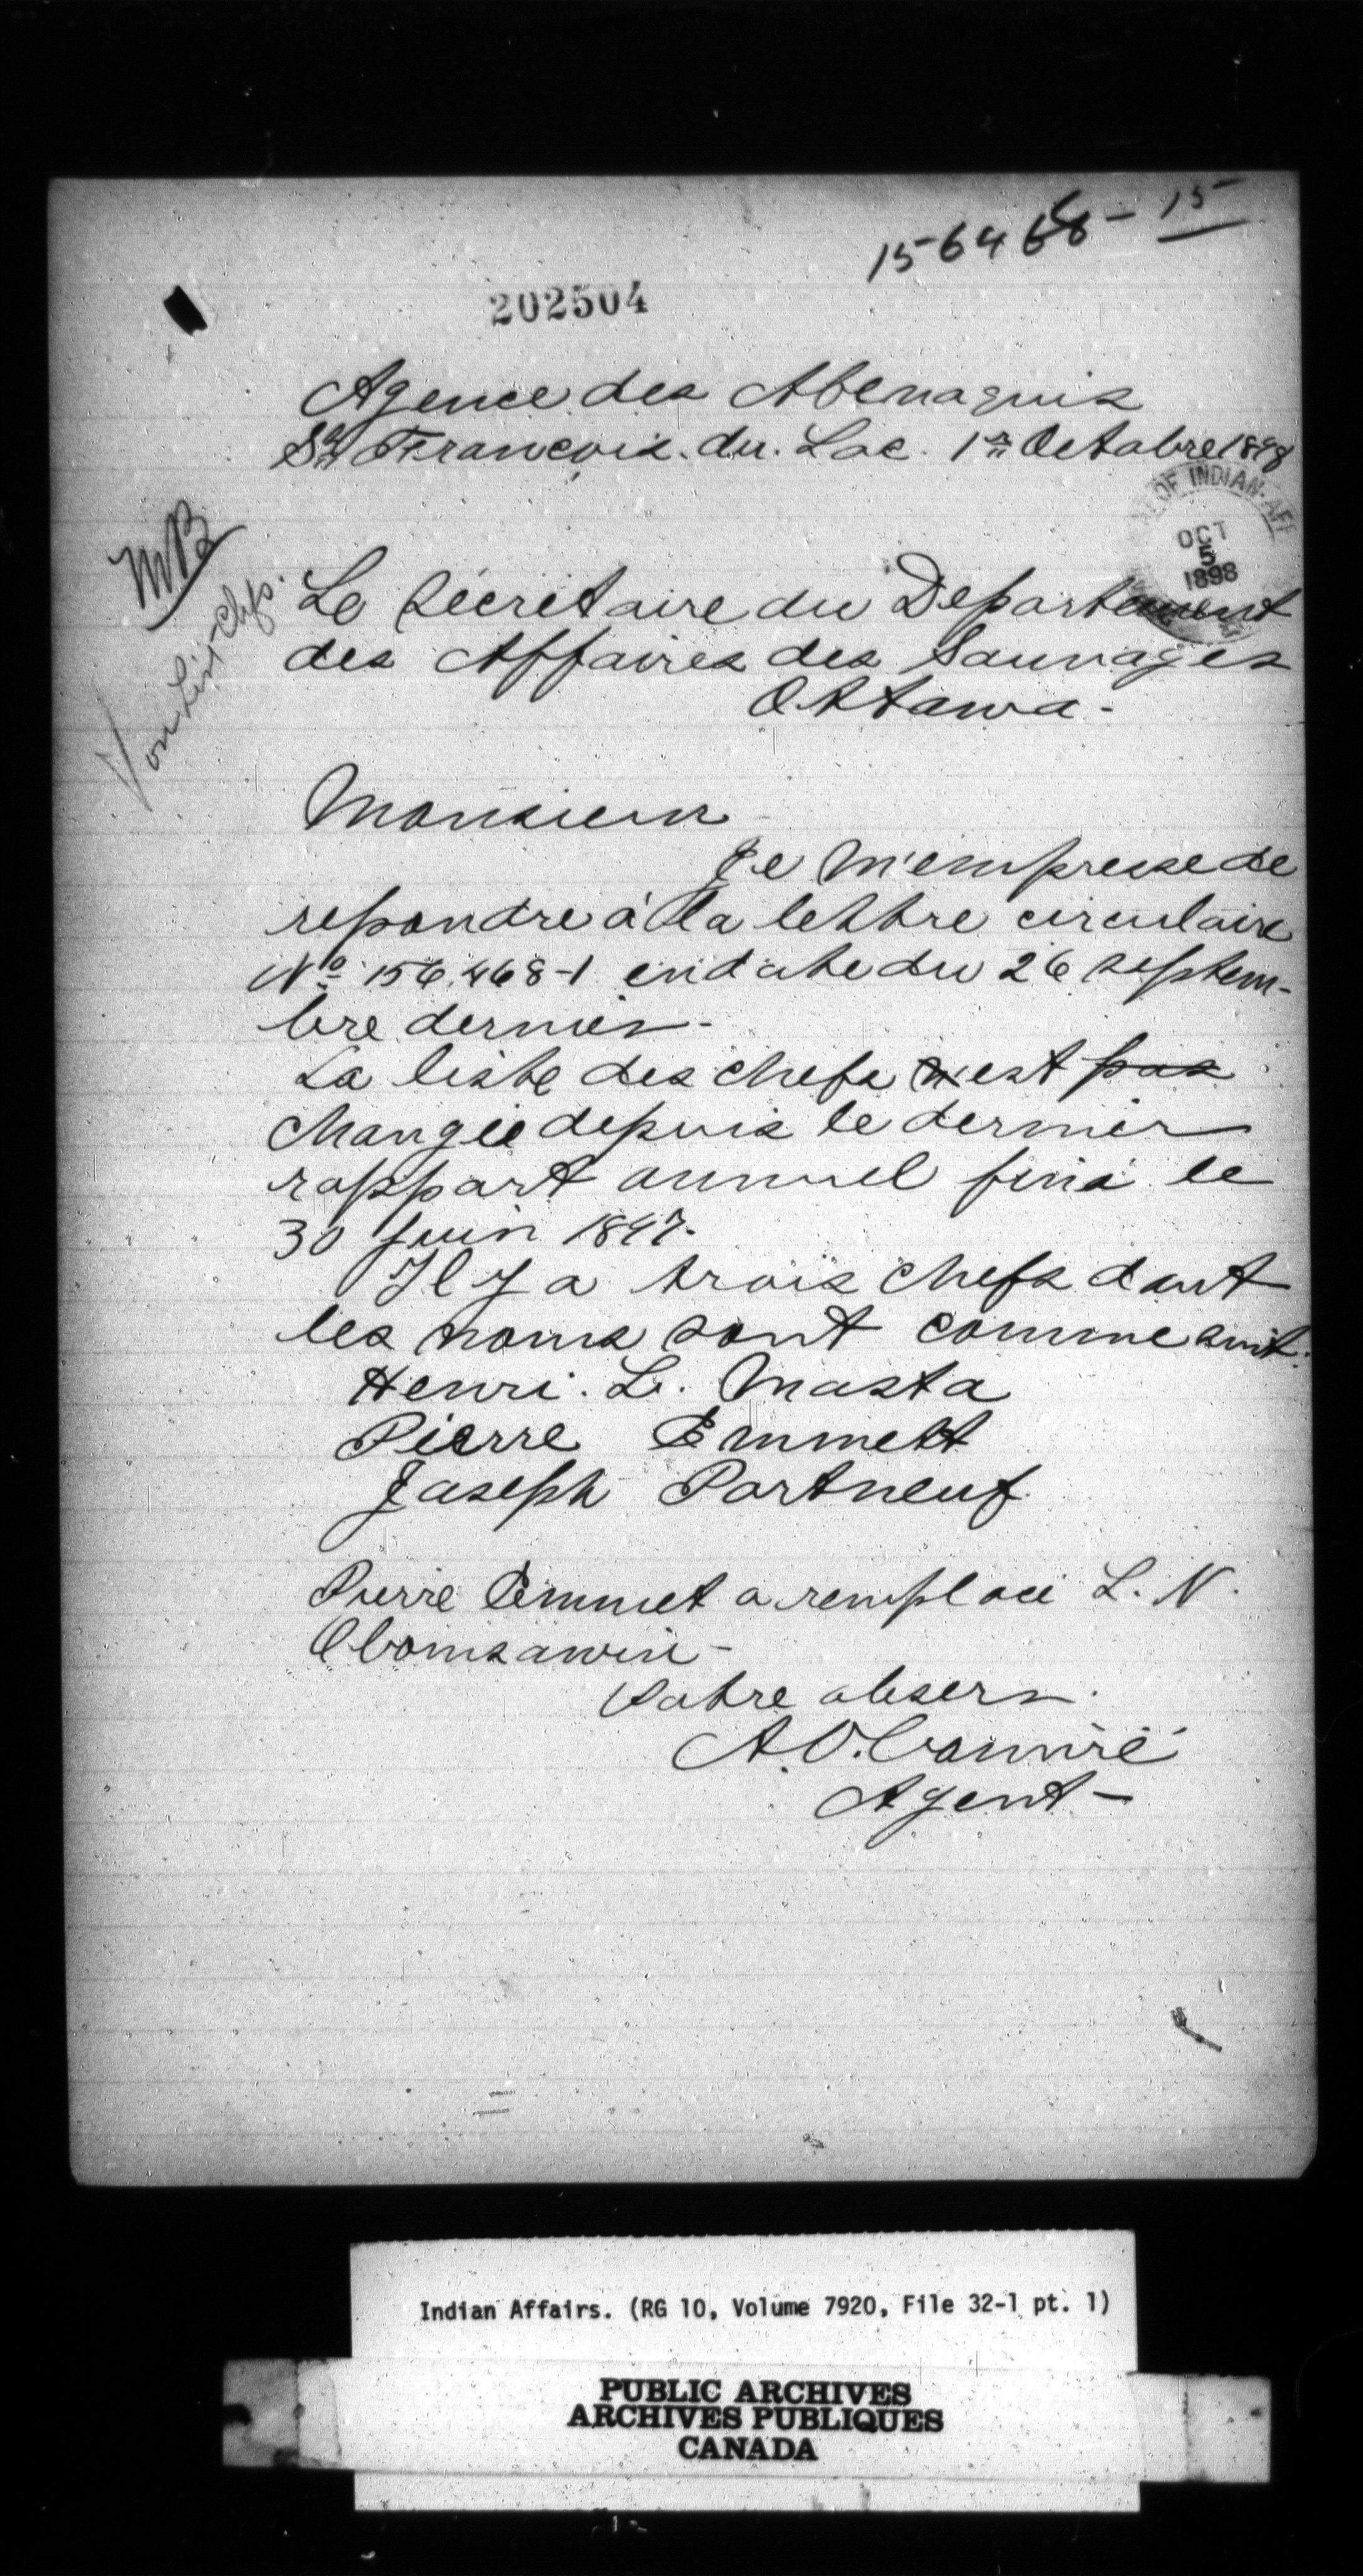 156468-15
202504
Agence des Abenaquis
St François. du. Lac. 1er Octobre 1898
OF INDIAN AFF
OCT
5
1898
MB
V on List Chfs.
Le Sécrétaire du Departement
des Affaires des Sauvages
Ottawa -
Monsieur
Je m'empresse de
repondre à la lettre circulaire
No 156.468-1 en date du 26 septem-
bre dernier -
La liste des chefs n'est pas
changée depuis le dernier
rapport annuel fini le
30 Juin 1897.
Il y a trois chefs dont
les noms sont comme suit:
Henri. L. Masta
Pierre Emmett
Joseph Portneuf
Pierre Emmet a remplacé L. N.
Obomsawin -
Votre obserr.
A. O. Comiré
Agent -
Indian Affairs. (RG 10, Volume 7920, File 32-1 pt. 1)
PUBLIC ARCHIVES
ARCHIVES PUBLIQUES
CANADA